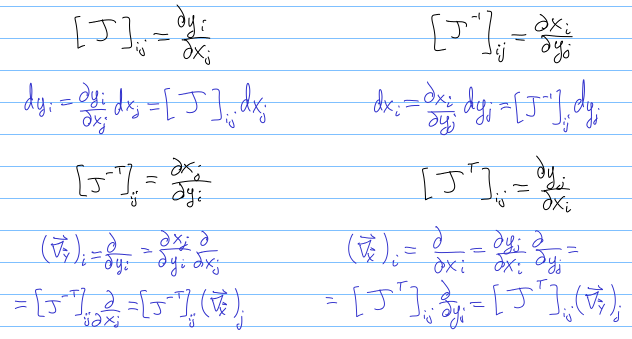 [J]ᵢⱼ = ∂yᵢ/∂xⱼ    [J⁻¹]ᵢⱼ = ∂xᵢ/∂yⱼ
dyᵢ = ∂yᵢ/∂xⱼ dxⱼ = [J]ᵢⱼ dxⱼ    dxᵢ = ∂xᵢ/∂yⱼ dyⱼ = [J⁻¹]ᵢⱼ dyⱼ
[J⁻ᵀ]ᵢⱼ = ∂xⱼ/∂yᵢ    [Jᵀ]ᵢⱼ = ∂yⱼ/∂xᵢ
(∇⃗_y⃗)ᵢ = ∂/∂yᵢ = ∂xⱼ/∂yᵢ ∂/∂xⱼ    (∇⃗_x⃗)ᵢ = ∂/∂xᵢ = ∂yⱼ/∂xᵢ ∂/∂yⱼ =
= [J⁻ᵀ]ᵢⱼ ∂/∂xⱼ = [J⁻ᵀ]ᵢⱼ (∇⃗_x⃗)ⱼ    = [Jᵀ]ᵢⱼ ∂/∂yⱼ = [Jᵀ]ᵢⱼ (∇⃗_y⃗)ⱼ